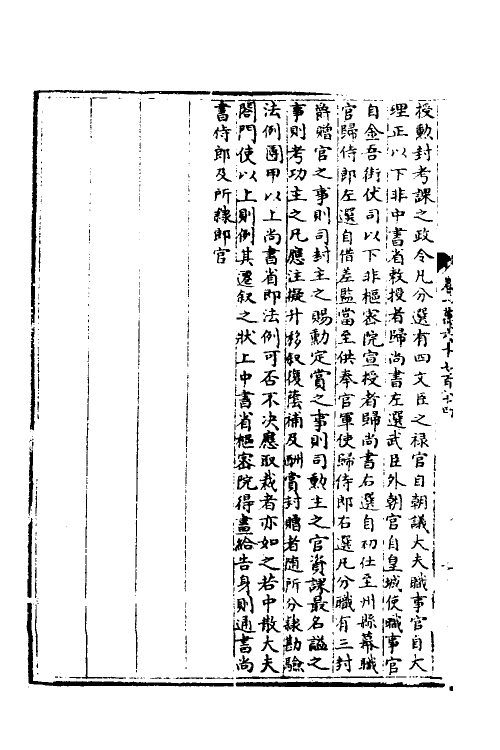 授勲封考課之政令凡分選有四文臣之禄官自朝議大夫職事官自大
理正以下非中書省敕授者歸尚書左選武臣外朝官自皇城使職事官
自金吾街仗司以下非樞密院宣授者歸尚書右選自初仕至州縣幕職
官歸侍郎左選自借差監當至供奉官軍使歸侍郎右選凡分職有三封
爵贈官之事則司封主之賜勲定賞之事則司勲主之官資課最名謚之
事則考功主之凡應注擬升移叙復蔭補及酬賞封贈者随所分隸勘驗
法例團甲以上尚書省即法例可否不决應取裁者亦如之若中散大夫
閤門使以上則例其遷叙之狀上中書省樞密院得畫給告身則通書尚
書侍郎及所隸郎官